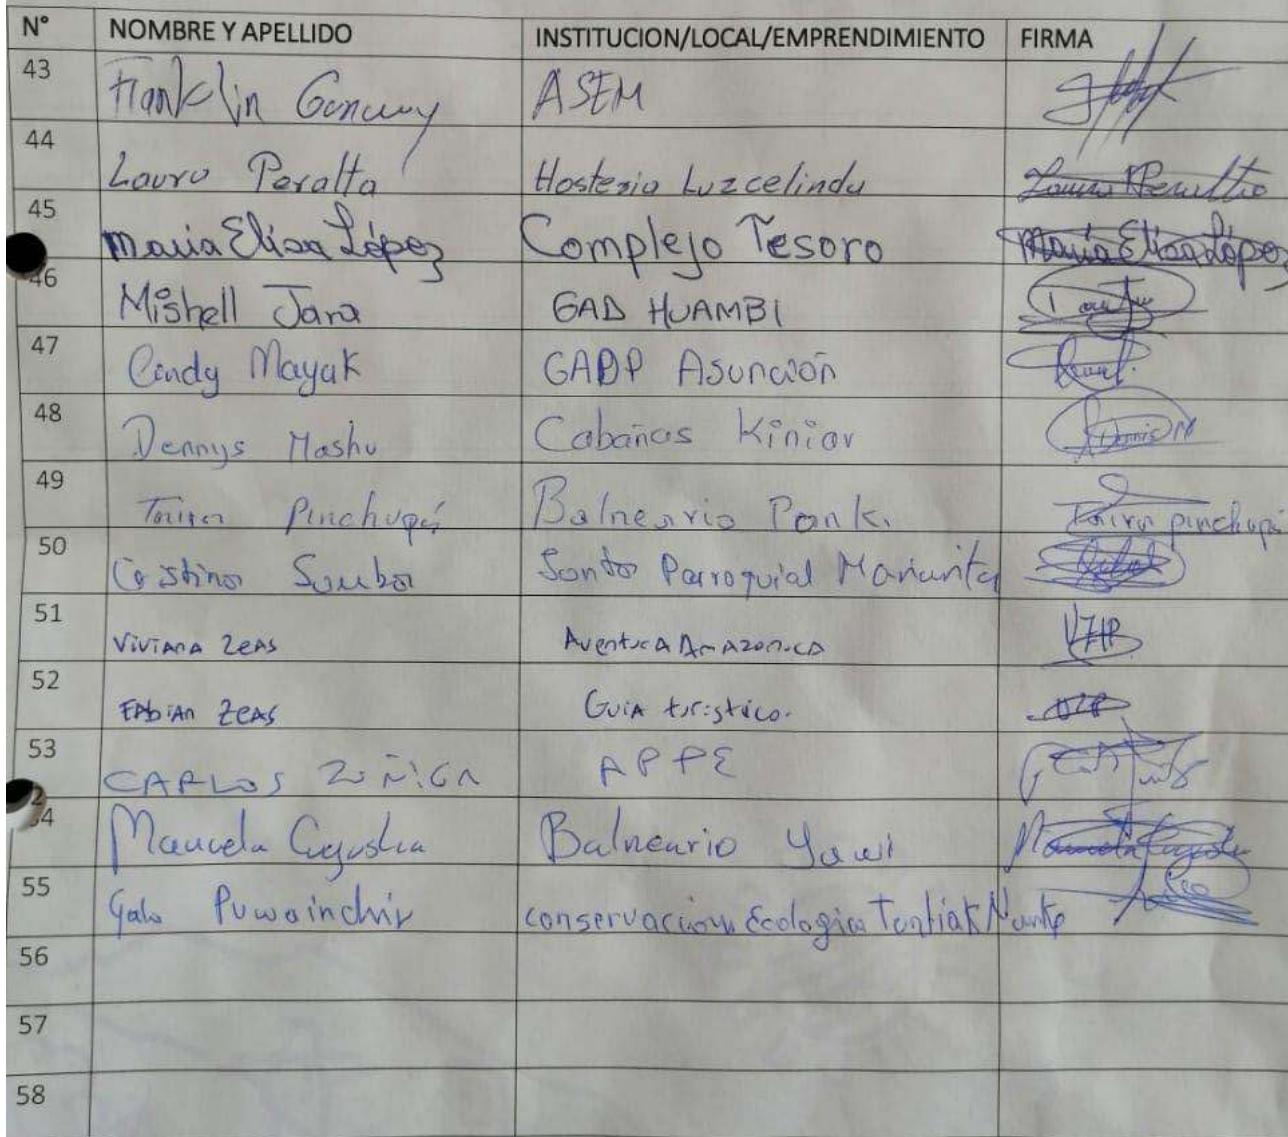 N° NOMBRE Y APELLIDO INSTITUCION/LOCAL/EMPRENDIMIENTO FIRMA
43 Franklin ASEM
44 Lauro Peralta Hosteria Luzcelinda Lauro Peralta
45 Maria Elisa López Complejo Tesoro María Elisa López
46 Mishell Jara GAD HUAMBI
47 Cindy Mayak GADP Asunción
48 Dennys Mashu Cabañas Kiniar Dennis M
49 Pinchupá Balneario Panki Pinchupá
50 Parroquial
51 Viviana Zeas Aventura Amazonica
52 Fabian Zeas Guia turistico.
53 CARLOS ZUÑIGA
54 Balneario Yawi
55 Galo Puwainchir conservacion Ecologica
56
57
58